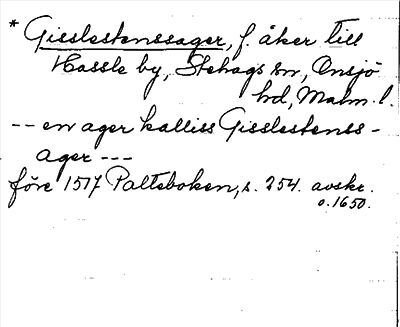 * Gisslestenssager, f. åker till
Hassle by, Stehags sn, Onsjö
hd, Malm. l.
-- en ager kalliss Gisslestenss-
ager ---
före 1517 Palteboken, s. 254. avskr.
o. 1650.